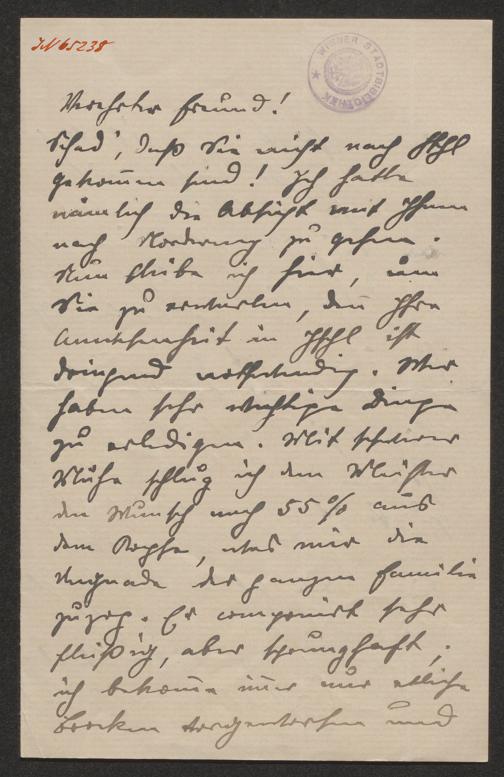 JN 65238
WIENER STADTBIBLIOTHEK
Verehrter Freund!
Schad', daß Sie nicht nach Ischl
gekom̅en sind! Ich hatte
nämlich die Absicht mit Ihnen
nach Norderney zu gehen.
Nun bleibe ich hier, um
Sie zu erwarten, den̅ Ihre
Anwesenheit in Ischl ist
dringend nothwendig. Wir
haben sehr wichtige Dinge
zu erledigen. Mit schwerer
Mühe schlug ich dem Meister
den Wunsch nach 55% aus
dem Kopfe, was mir die
Ungnade der ganzen Familie
zuzog. Er componirt sehr
fleißig, aber sprunghaft,
ich bekom̅e im̅er nur etliche
Brocken vorgeworfen und